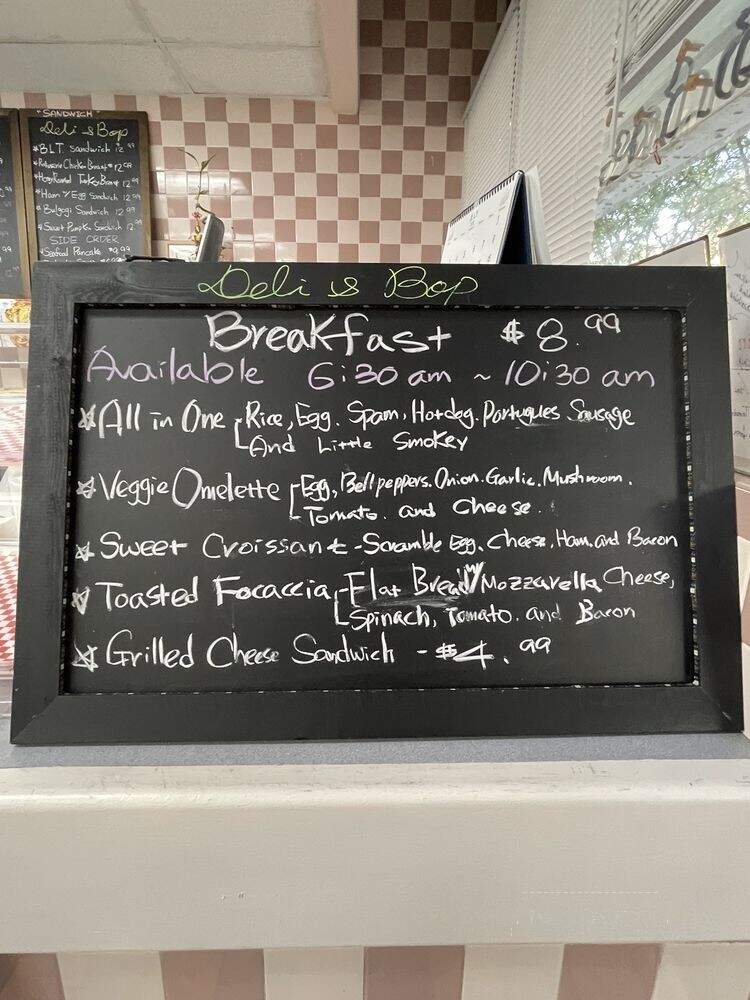 "SANDWICH"
Deli & Bop
*BLT Sandwich 12.99
*Ham & Egg Sandwich 12.99
*Bulgogi Sandwich 12.99
*Sweet Pumpkin Sandwich 12.99
SIDE ORDER
*Seafood Pancake $9.99
Deli & Bop
Breakfast $8.99
Available 6:30 am ~ 10:30 am
All in One - Rice, Egg. Spam, Hotdog. Portugues Sausage
And Little Smokey
Veggie Omelette Egg, Bell peppers. Onion. Garlic. Mushroom.
Tomato. and Cheese.
Sweet Croissant - Scramble Egg. Cheese, Ham, and Bacon
Toasted Focaccia - Flat Bread w/ Mozzarella Cheese,
Spinach, Tomato. and Bacon
Grilled Cheese Sandwich - $4.99